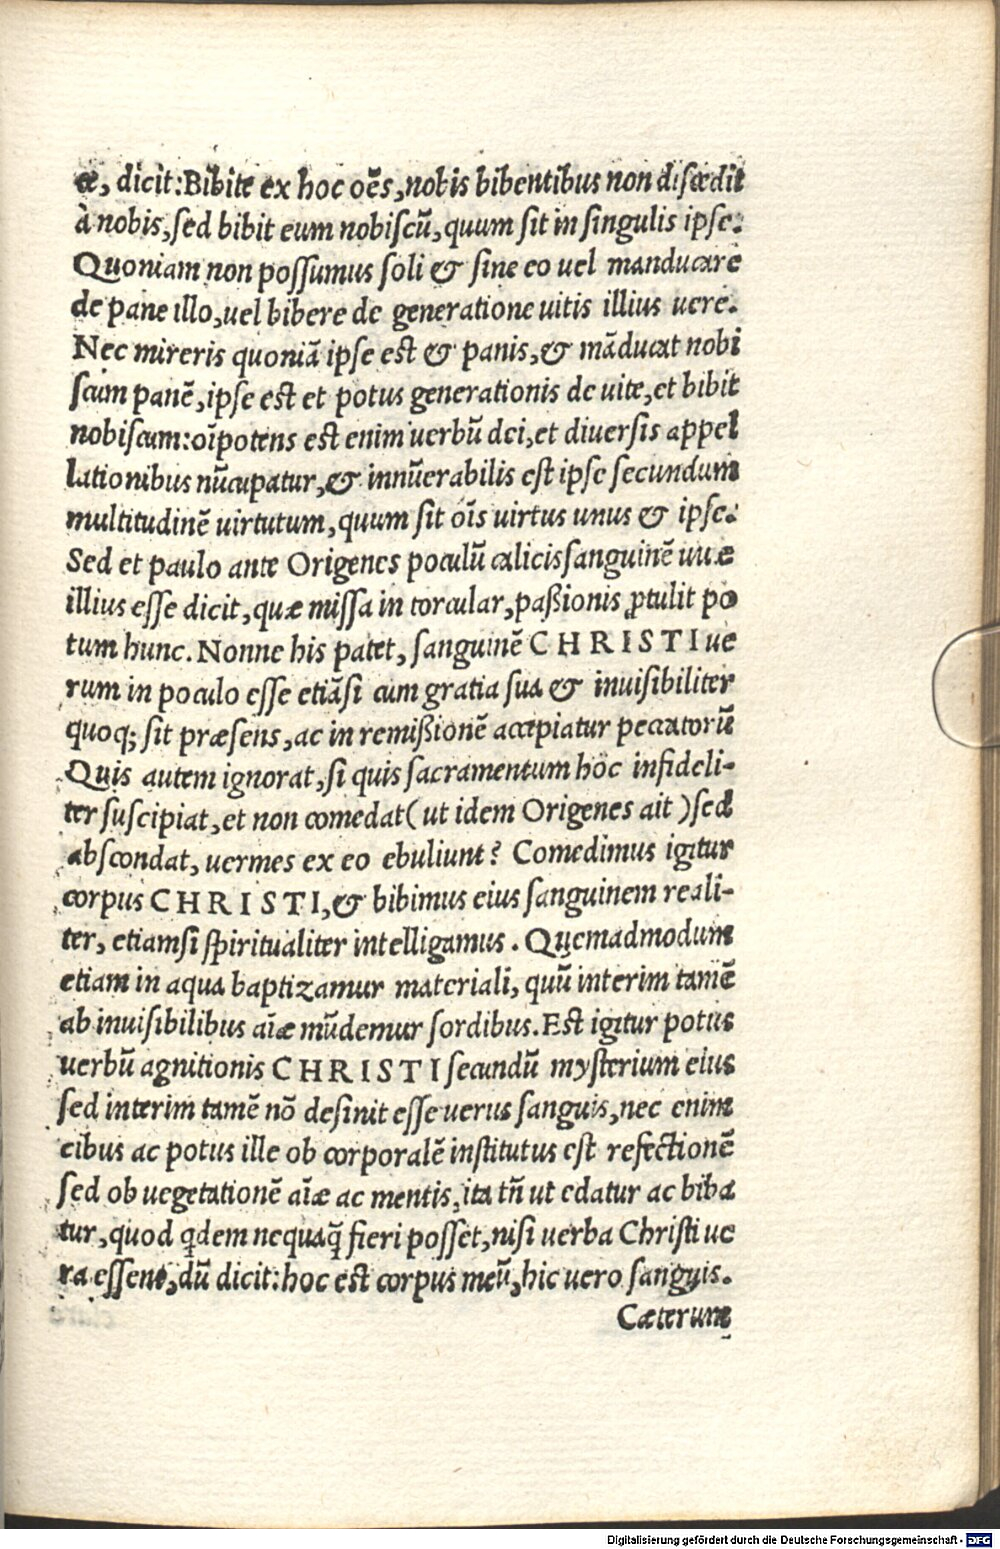 ce, dicit: Bibite ex hoc oēs, nobis bibentibus non discedit
à nobis, sed bibit eum nobiscū, quum sit in singulis ipse.
Quoniam non possumus soli & sine eo uel manducare
de pane illo, uel bibere de generatione uitis illius uere.
Nec mireris quoniā ipse est & panis, & māducat nobi
scum panē, ipse est et potus generationis de uite, et bibit
nobiscum: oīpotens est enim uerbū dei, et diuersis appel
lationibus nūcupatur, & innūerabilis est ipse secundum
multitudinē uirtutum, quum sit oīs uirtus unus & ipse.
Sed et paulo ante Origenes poculū calicis sanguinē uuæ
illius esse dicit, quæ missa in torcular, paßionis ꝓtulit po
tum hunc. Nonne his patet, sanguinē CHRISTI ue
rum in poculo esse etiāsi cum gratia sua & inuisibiliter
quoq; sit præsens, ac in remißionē accipiatur peccatorū
Quis autem ignorat, si quis sacramentum hoc infideli-
ter suscipiat, et non comedat (ut idem Origenes ait) sed
abscondat, uermes ex eo ebuliunt? Comedimus igitur
corpus CHRISTI, & bibimus eius sanguinem reali-
ter, etiamsi spiritualiter intelligamus. Quemadmodum
etiam in aqua baptizamur materiali, quū interim tamē
ab inuisibilibus aīæ mūdemur sordibus. Est igitur potus
uerbū agnitionis CHRISTI secundū mysterium eius
sed interim tamē nō desinit esse uerus sanguis, nec enim
cibus ac potus ille ob corporalē institutus est refectionē
sed ob uegetationē aīæ ac mentis, ita tñ ut edatur ac biba
tur, quod qdem nequaq̄ fieri posset, nisi uerba Christi ue
ra essent, dū dicit: hoc est corpus meū, hic uero sanguis.
Cæterum
Digitalisierung gefördert durch die Deutsche Forschungsgemeinschaft - DFG